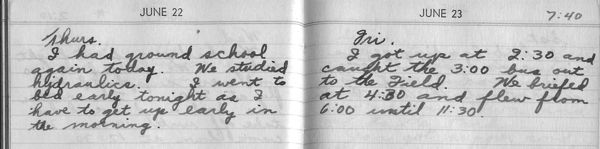 JUNE 22
Thurs.
I had ground school
again today. We studied
hydraulics. I went to
bed early tonight as I
have to get up early in
the morning.
JUNE 23
7:40
Fri.
I got up at 2:30 and
caught the 3:00 bus out
to the field. We briefed
at 4:30 and flew from
6:00 until 11:30.